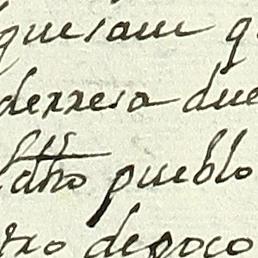 quesam q
derresa due
dho pueblo
tro depoco